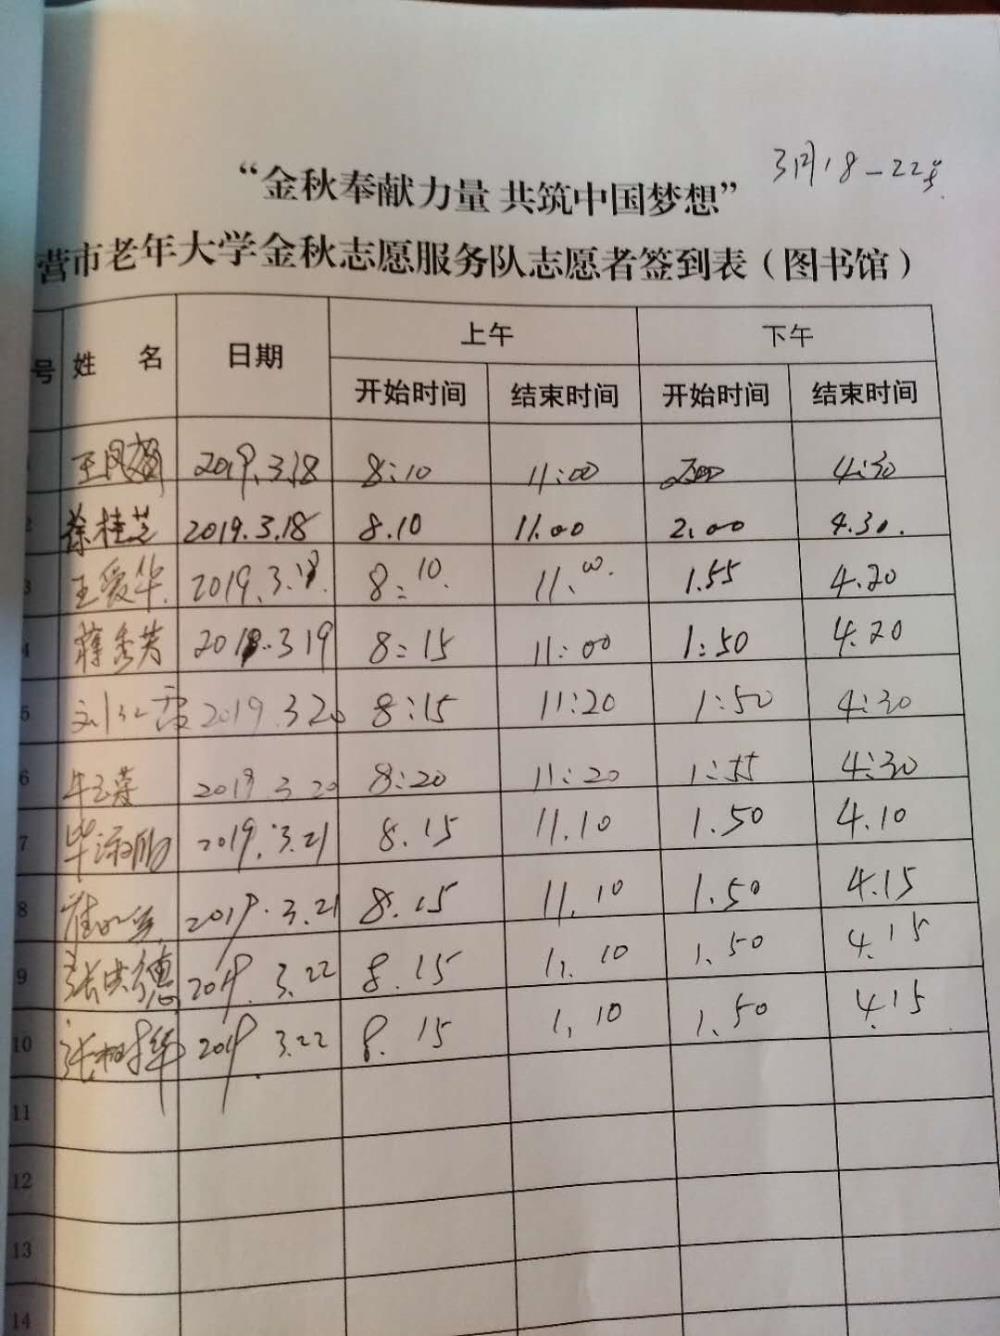 3月18-22号
“金秋奉献力量 共筑中国梦想”
营市老年大学金秋志愿服务队志愿者签到表（图书馆）
号 姓 名 日期 上午 下午
开始时间 结束时间 开始时间 结束时间
王凤 2019.3.18 8:10 11:00 2:00 4:30
2 徐桂芝 2019.3.18 8.10 11.00 2.00 4.30.
3 王爱华 2019.3.18. 8:10. 11.00. 1.55 4.20
4 蒋秀芳 2019.3 19 8:15 11:00 1:50 4:20
5 刘红霞 2019.3 20 8:15 11:20 1:50 4:30
6 牛玉 2019 3 20 8:20 11:20 1:55 4:30
7 毕淑 2019.3.21 8.15 11.10 1.50 4.10
8 崔 2019.3.21 8.15 11.10 1.50 4.15
9 张洪德 2019.3.22 8.15 11.10 1.50 4.15
10 张树华 2019 3.22 8.15 1.10 1.50 4.15
11
12
13
14